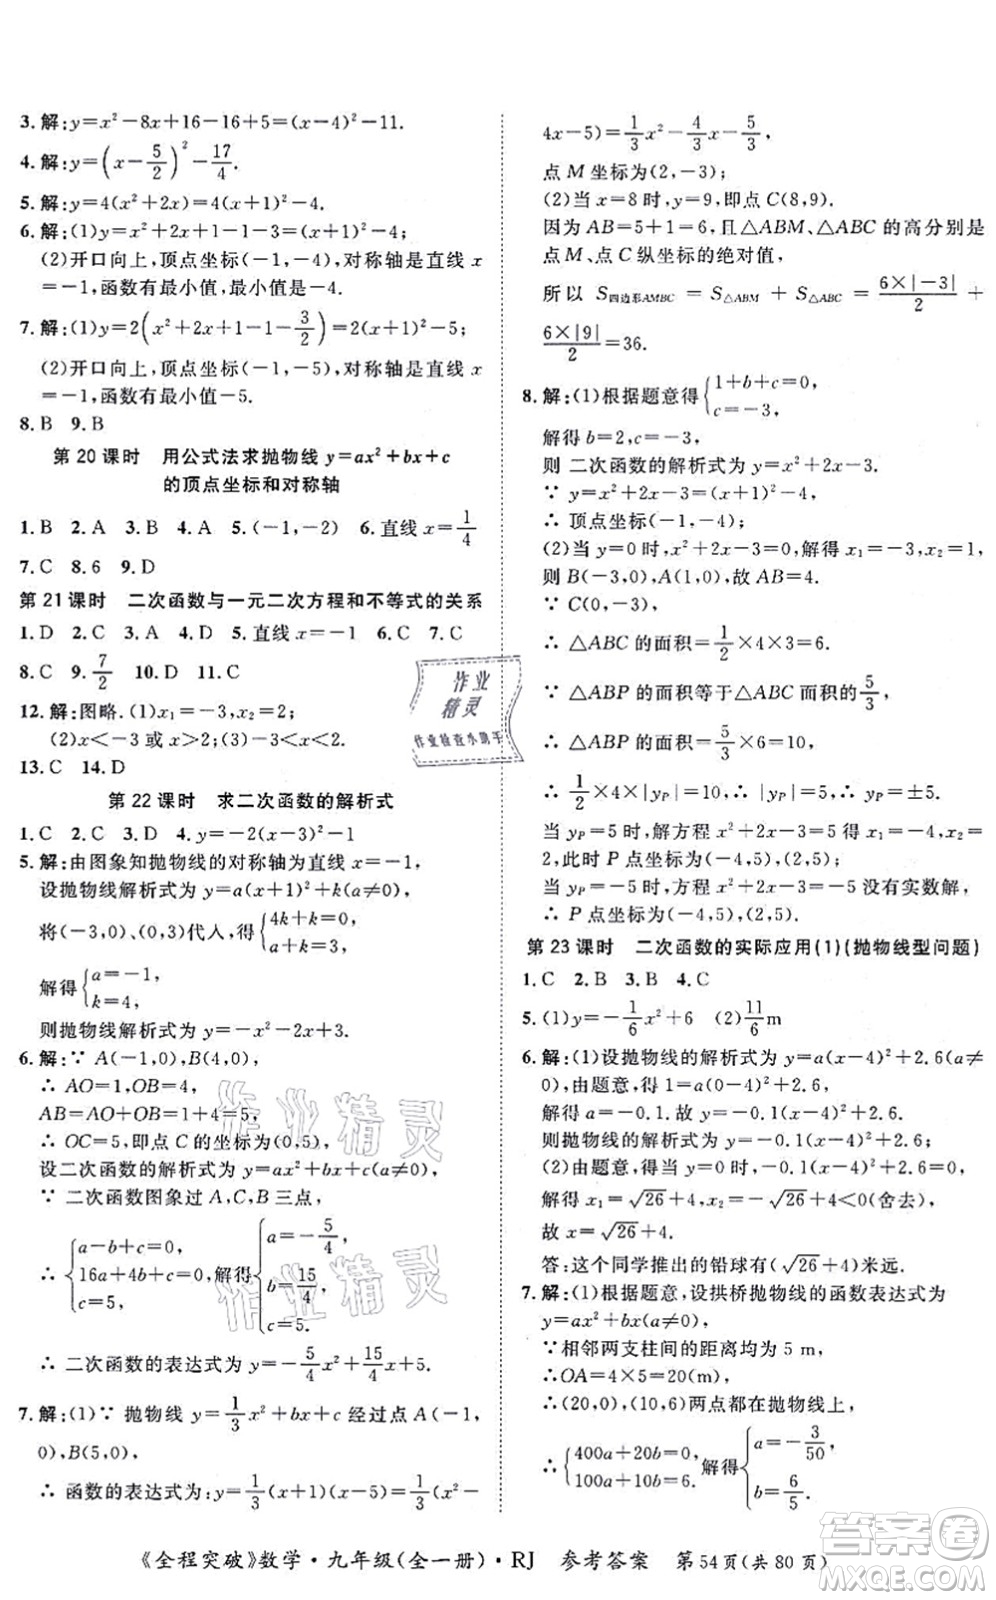 3.解:y=x²-8x+16-16+5=(x-4)²-11.
4.解:y=(x-5/2)²-17/4.
5.解:y=4(x²+2x)=4(x+1)²-4.
6.解:(1)y=x²+2x+1-1-3=(x+1)²-4;
(2)开口向上,顶点坐标(-1,-4),对称轴是直线 x
=-1,函数有最小值,最小值-4.
7.解:(1)y=2(x²+2x+1-1-3/2)=2(x+1)²-5;
(2)开口向上,顶点坐标(-1,-5),对称轴是直线 x
=-1,函数有最小值-5.
8.B 9.B
第20课时 用公式法求抛物线 y=ax²+bx+c
的顶点坐标和对称轴
1.B 2.A 3.B 4.A 5.(-1,-2) 6.直线 x=1/4
7.C 8.6 9.D
第21课时 二次函数与一元二次方程和不等式的关系
1.D 2.C 3.A 4.D 5.直线 x=-1 6.C 7.C
8.C 9.7/2 10.D 11.C
12.解:图略.(1)x₁=-3,x₂=2;
(2)x<-3 或 x>2;(3)-3<x<2.
13.C 14.D
第22课时 求二次函数的解析式
1.C 2.C 3.D 4.y=-2(x-3)²-1
5.解:由图象知抛物线的对称轴为直线 x=-1,
设抛物线解析式为 y=a(x+1)²+k(a≠0),
将(-3,0)、(0,3)代入,得{4k+k=0, a+k=3,
解得{a=-1, k=4,
则抛物线解析式为 y=-x²-2x+3.
6.解:∵ A(-1,0),B(4,0),
∴ AO=1,OB=4,
AB=AO+OB=1+4=5,
∴ OC=5,即点 C 的坐标为(0,5),
设二次函数的解析式为 y=ax²+bx+c(a≠0),
∵ 二次函数图象过 A,C,B 三点,
∴ {a-b+c=0, 16a+4b+c=0, c=5, 解得{a=-5/4, b=15/4, c=5.
∴ 二次函数的表达式为 y=-5/4x²+15/4x+5.
7.解:(1)∵ 抛物线 y=1/3x²+bx+c 经过点 A(-1,
0),B(5,0),
∴ 函数的表达式为:y=1/3(x+1)(x-5)=1/3(x²-
4x-5)=1/3x²-4/3x-5/3,
点 M 坐标为(2,-3);
(2)当 x=8 时,y=9,即点 C(8,9),
因为 AB=5+1=6,且△ABM、△ABC 的高分别为
点 M、点 C 纵坐标的绝对值,
所以 S四边形AMBC=S△ABM+S△ABC=6×|-3|/2+
6×|9|/2=36.
8.解:(1)根据题意得{1+b+c=0, c=-3,
解得 b=2,c=-3,
则 二次函数的解析式为 y=x²+2x-3.
∵ y=x²+2x-3=(x+1)²-4,
∴ 顶点坐标(-1,-4);
(2)当 y=0 时,x²+2x-3=0,解得 x₁=-3,x₂=1,
则 B(-3,0),A(1,0),故 AB=4.
∵ C(0,-3),
∴ △ABC 的面积=1/2×4×3=6.
∵ △ABP 的面积等于△ABC 面积的5/3,
∴ △ABP 的面积=5/3×6=10,
∴ 1/2×4×|yP|=10,∴ |yP|=5,∴ yP=±5.
当 yP=5 时,解方程 x²+2x-3=5 得 x₁=-4,x₂=
2,此时 P 点坐标为(-4,5),(2,5);
当 yP=-5 时,方程 x²+2x-3=-5 没有实数解,
∴ P 点坐标为(-4,5),(2,5).
第23课时 二次函数的实际应用(1)(抛物线型问题)
1.C 2.B 3.B 4.C
5.(1)y=-1/6x²+6 (2)11/6m
6.解:(1)设抛物线的解析式为 y=a(x-4)²+2.6(a≠
0),由题意,得 1=a(0-4)²+2.6,
解得 a=-0.1.故 y=-0.1(x-4)²+2.6.
则抛物线的解析式为 y=-0.1(x-4)²+2.6;
(2)由题意,得-0.1(x-4)²+2.6=0,
解得 x₁=√26+4,x₂=-√26+4<0(舍去),
故 x=√26+4.
答:这个同学推出的铅球有(√26+4)米远.
7.解:(1)根据题意,设拱桥抛物线的函数表达式为
y=ax²+bx(a≠0),
∵相邻两支柱间的距离均为 5 m,
∴OA=4×5=20(m),
∴(20,0),(10,6)两点都在抛物线上,
∴{400a+20b=0, 100a+10b=6. 解得{a=-3/50, b=6/5.
《全程突破》数学·九年级(全一册)·RJ 参考答案 第54页(共80页)
作业
精灵
作业检查小助手
作业精灵
作业精灵
答案圈
MXQE.COM